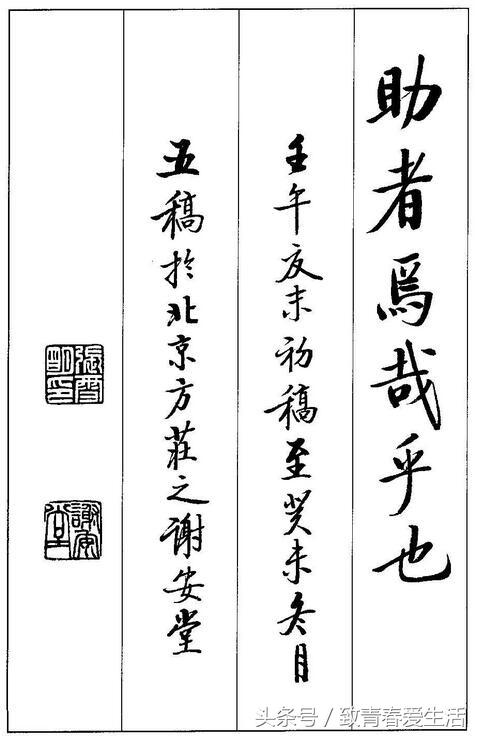 助者焉哉乎也
壬午夏末初稿至癸未冬月
五稿於北京方莊之謝安堂
謝安堂
头条号 / 致青春爱生活